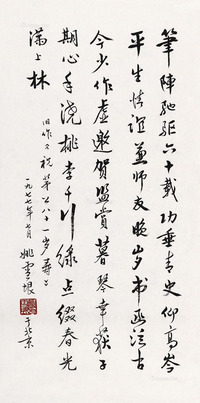 筆陣馳驅六十載功垂青史仰高岑
平生情誼兼師友晚歲书函泛古
今少作虛邀賀監賞暮琴幸獲子
期心手澆桃李千行綠点綴春光
滿上林
旧作祝茅公八十一寿
一九七七年七月 姚雪垠
于北京